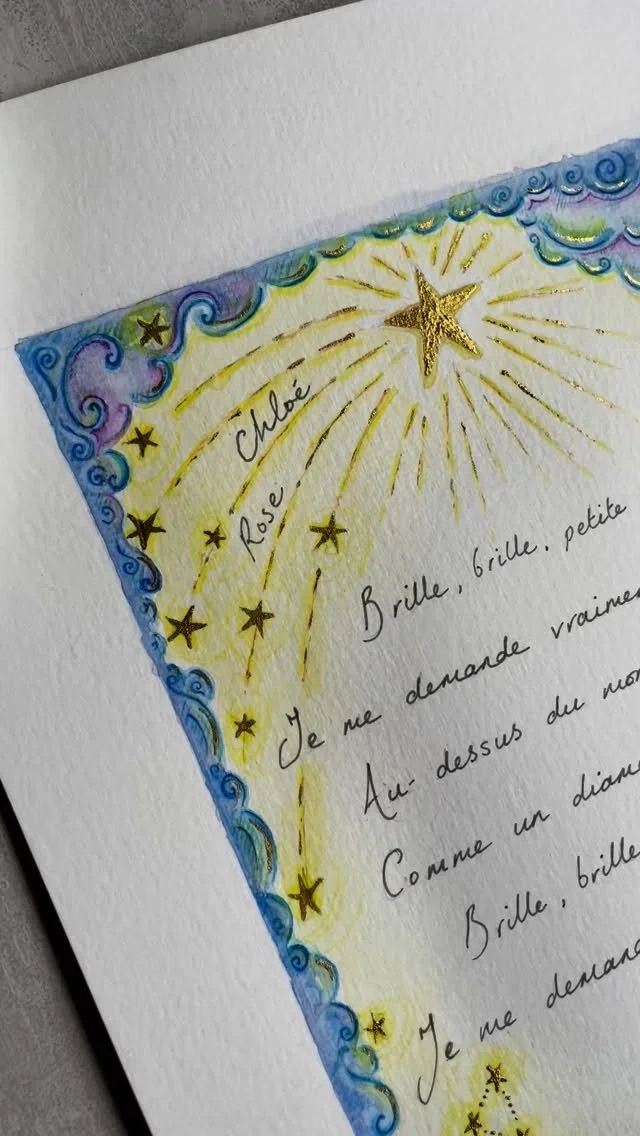 Chloé
Rose
Brille, brille, petite
Je me demande
Au-dessus du
Comme un
Brille, brille
Je me